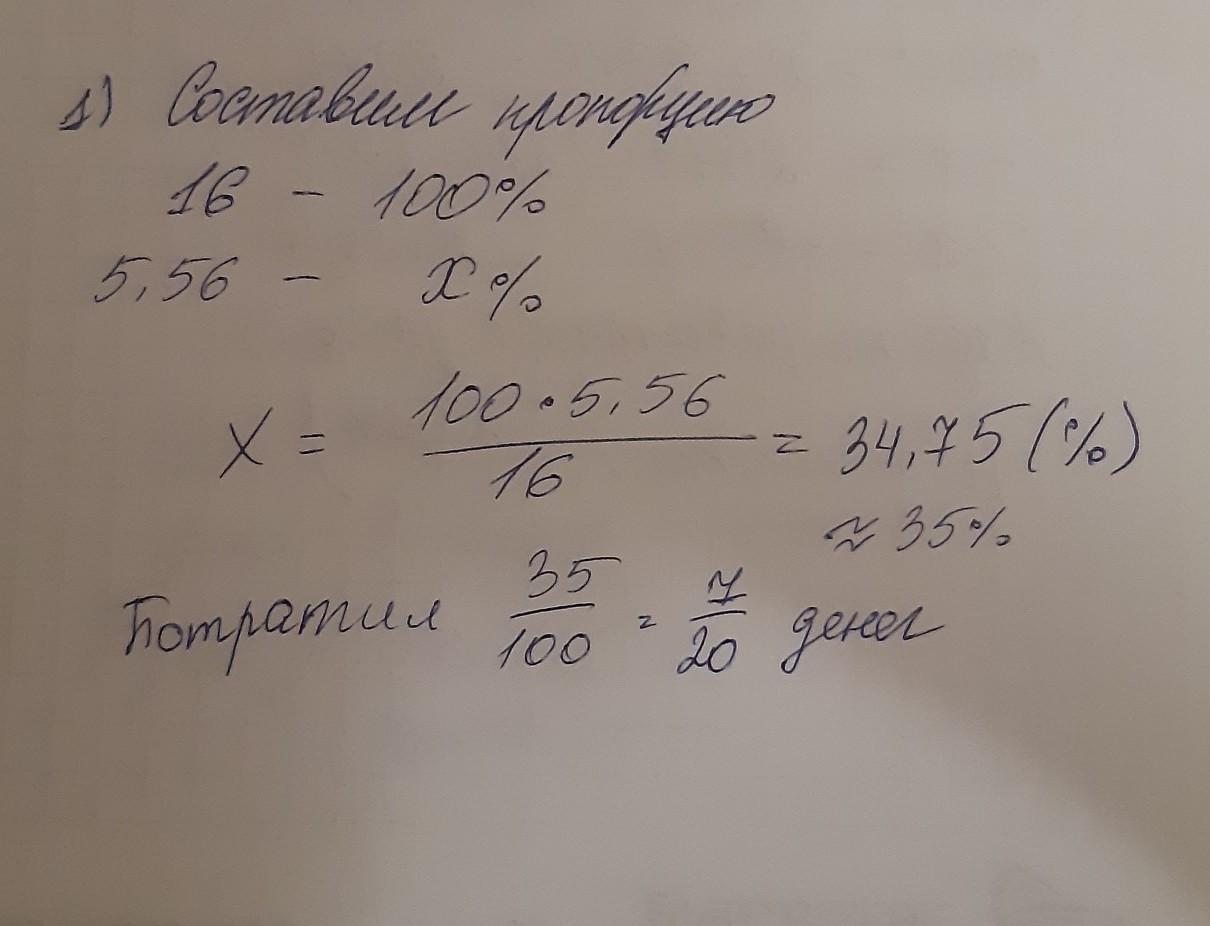 1) Составим пропорцию
16 - 100%
5,56 - x%
X = \frac{100 \cdot 5,56}{16} = 34,75 (%)
≈ 35%
Потратил \frac{35}{100} = \frac{7}{20} денег